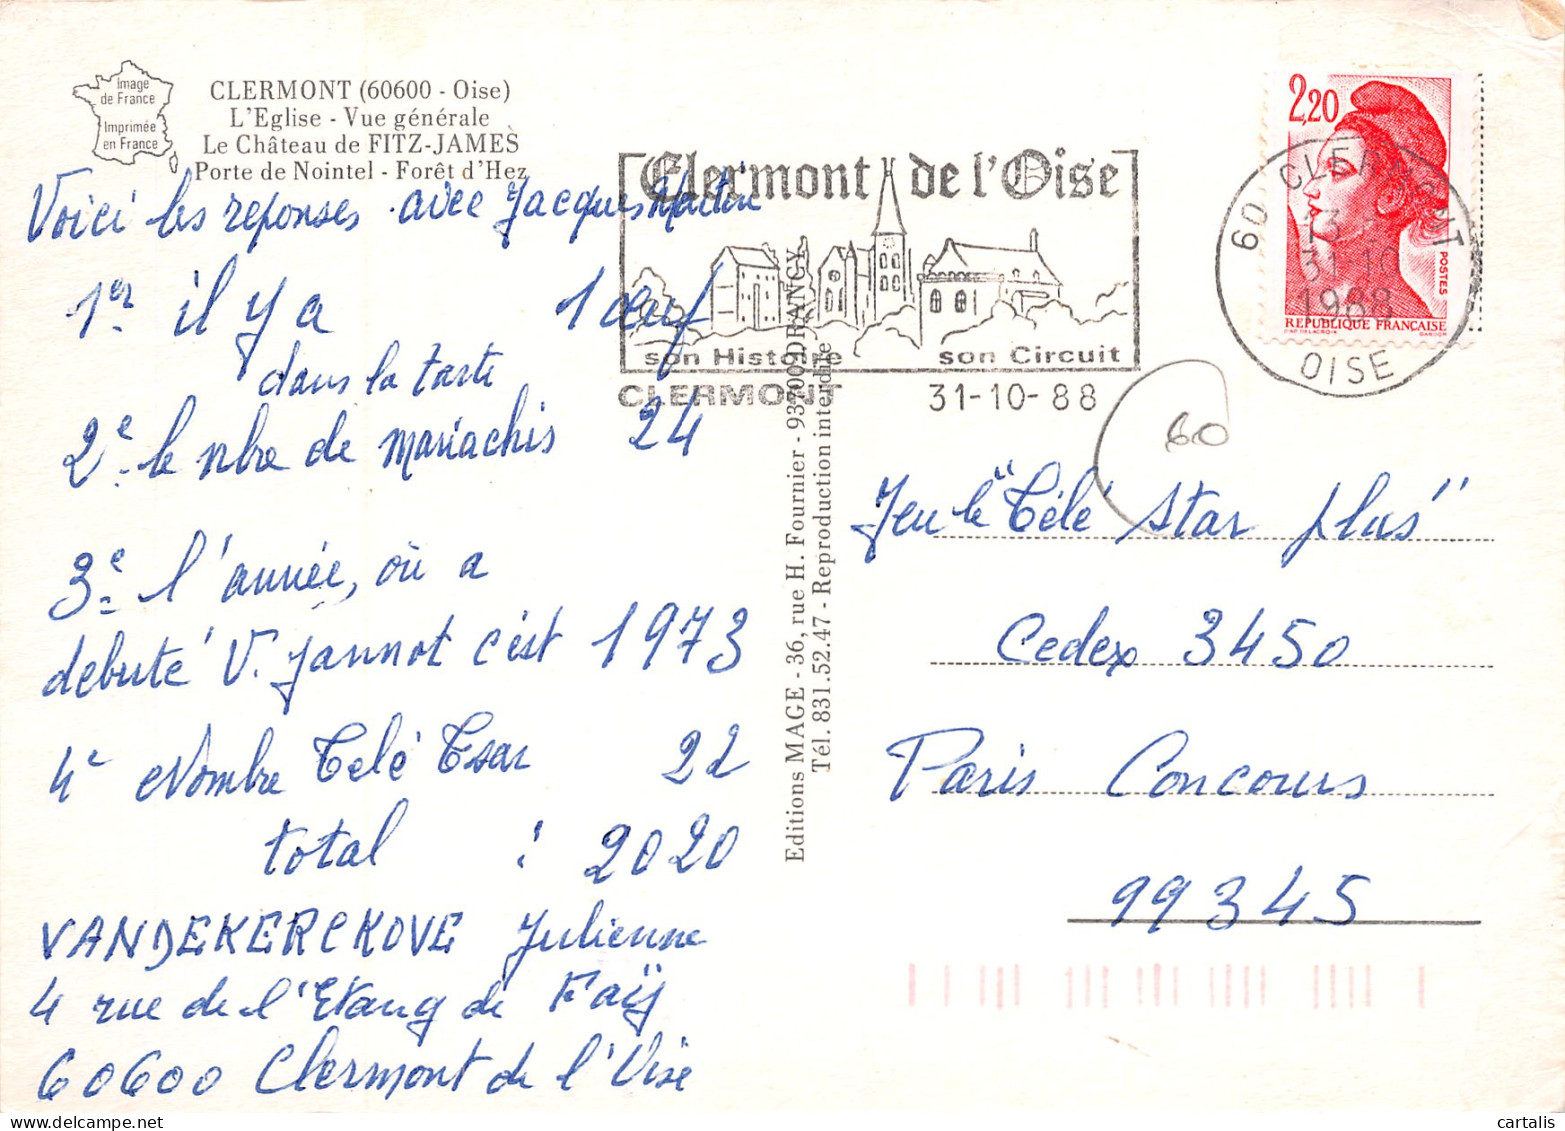 Image
de France
Imprimée
en France
CLERMONT (60600 - Oise)
L'Eglise - Vue générale
Le Château de FITZ-JAMES
Porte de Nointel - Forêt d'Hez
Voici les reponses avec Jacques Martin
1er il y a 1 œuf
dans la tarte
2e le nbre de mariachis 24
3e l'année, où a
debuté V. Jannot c'est 1973
4e Nombre Télé Tsar 22
total : 2020
VANDEKERCKOVE Julienne
4 rue de l'Etang de Faÿ
60600 Clermont de l'Oise
Editions MAGE - 36, rue H. Fournier - 93700 DRANCY
Tél. 831.52.47 - Reproduction interdite
Clermont de l'Oise
son Histoire son Circuit
CLERMONT 31-10-88
2,20
POSTES
REPUBLIQUE FRANÇAISE
60 CLERMONT
13
31-10
1988
OISE
60
Jeu le "Télé Star plus"
Cedex 3450
Paris Concours
99345
cartalis